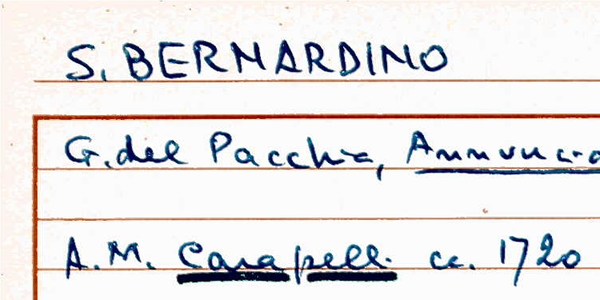 S. BERNARDINO
G. del Pacchia, Annuncia
A.M. Carapelli ca. 1720